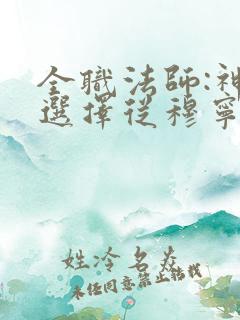 全職法師:神
選擇從穆寧
姓冷名焱
未經同意禁止轉載